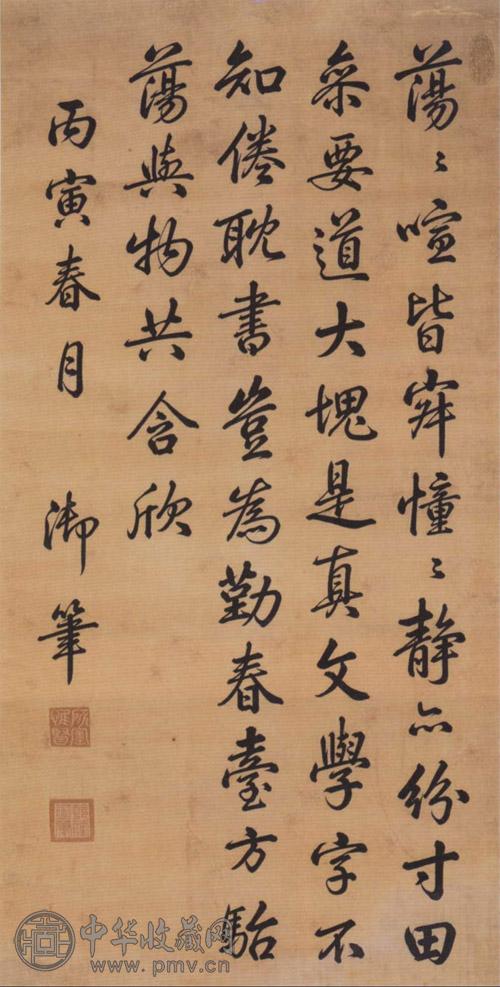 蕩〻喧皆寂憧〻靜亦紛寸田
參要道大塊是真文學字不
知倦耽書豈為勤春臺方駘
蕩與物共含欣
丙寅春月 御筆
所寶惟賢
中华收藏网
www.pmv.cn